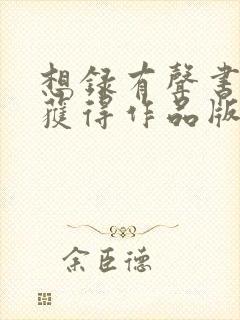 想録有聲書
獲得作品版
余臣德